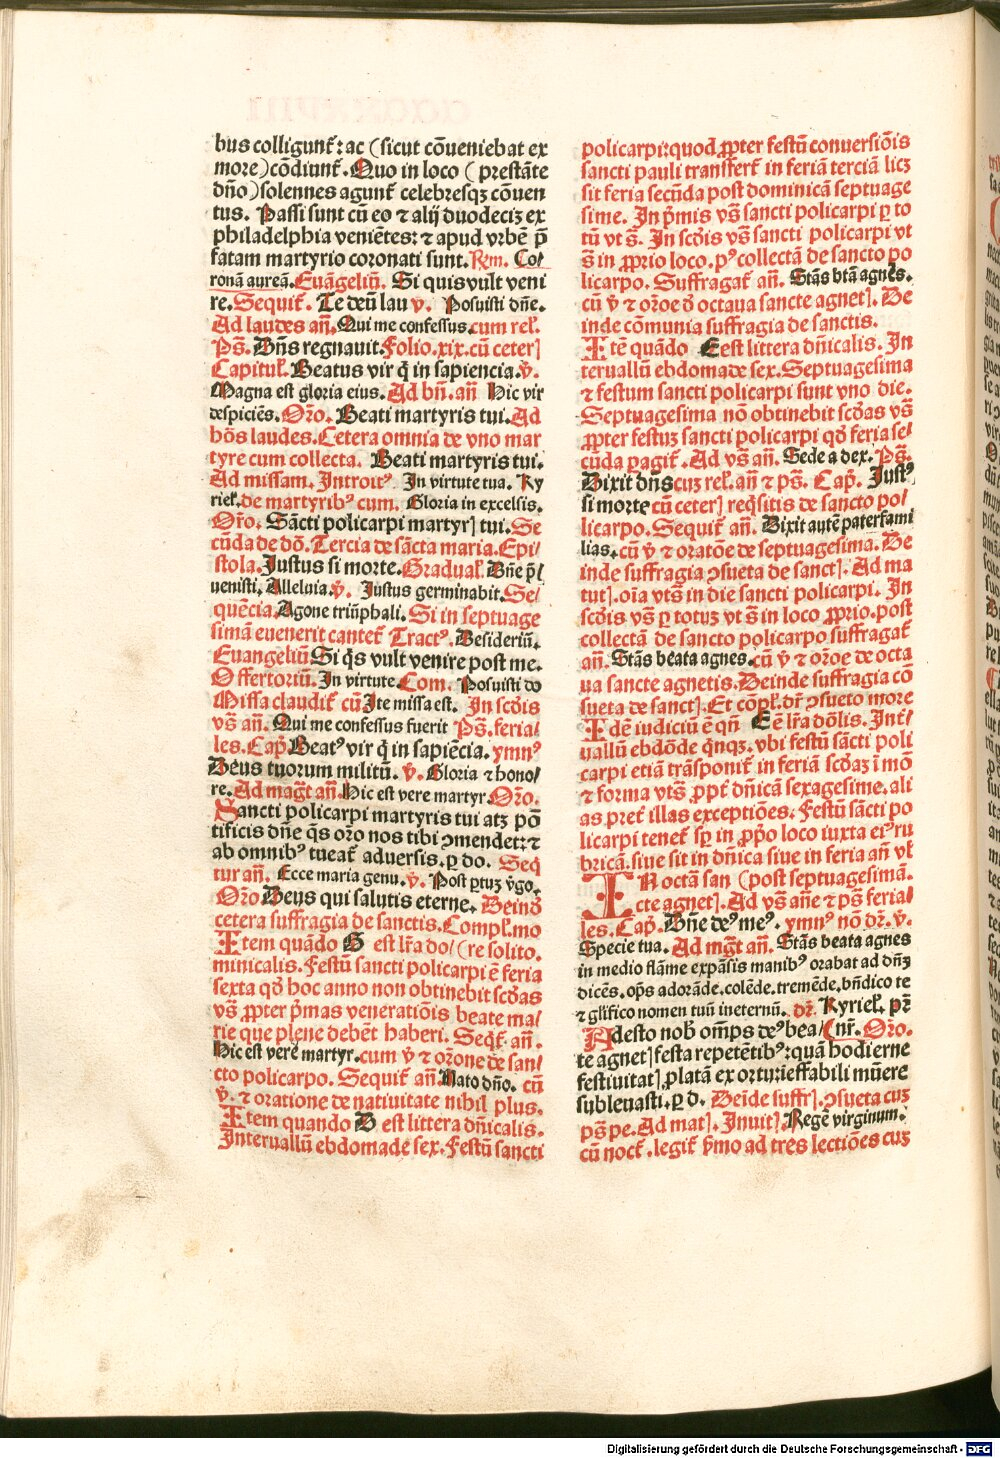 bus colligunt᷑: ac (sicut cōueniebat ex
more) cōdiunt᷑. Quo in loco (prestāte
dn̄o) solennes agunt᷑ celebresqꝫ cōuen
tus. Passi sunt cū eo ⁊ alij duodeciꝫ ex
philadelphia veniētes: ⁊ apud vrbē p̄
fatam martyrio coronati sunt. Rm̄. Co/
ronā aureā. Euāgeliū. Si quis vult veni
re. Sequit᷑. Te deū lau v̄. Posuisti dn̄e.
Ad laudes an̄. Qui me confessus. cum rel̄.
Ps̄. Dn̄s regnauit. Folio .xix. cū ceterꝭ
Capitul̄. Beatus vir q̄ in sapiencia. v̄.
Magna est gloria eius. Ad bn̄. an̄ Hic vir
despiciēs. Or̄o. Beati martyris tui. Ad
hōs laudes. Cetera omnia de vno mar
tyre cum collecta. Beati martyris tui.
Ad missam. Introitꝰ. In virtute tua. Ky
riel̄. de martyribꝰ cum. Gloria in excelsis.
Or̄o. Sācti policarpi martyrꝭ tui. Se
cūda de dō. Tercia de sācta maria. Epi/
stola. Justus si morte. Gradual̄. Dn̄e p̄/
uenisti. Alleluia. v̄. Justus germinabit. Se/
quēcia. Agone triūphali. Si in septuage
simā euenerit cantet᷑ Tractꝰ. Desideriū.
Euangeliū Si q̄s vult venire post me.
Offertoriū. In virtute. Com. Posuisti do
Missa claudit᷑ cū Ite missa est. In scd̄is
vs̄ an̄. Qui me confessus fuerit Ps̄. feria/
les. Cap̄ Beatꝰ vir q̄ in sapiēcia. ymnꝰ
Deus tuorum militū. v̄. Gloria ⁊ hono/
re. Ad mag̅t an̄. Hic est vere martyr. Or̄o.
Sancti policarpi martyris tui atꝫ pō
tificis dn̄e q̄s or̄o nos tibi ꝯmendet: ⁊
ab omnibꝰ tueat᷑ aduersis. ꝑ do. Seq̄
tur an̄. Ecce maria genu. v̄. Post ꝑtuꝫ v̄go.
Or̄o Deus qui salutis eterne. Deinđ
cetera suffragia de sanctis. Compl̄. mo
Item quādo G est lr̄a do/ (re solito.
minicalis. Festū sancti policarpi ē feria
sexta qđ hoc anno non obtinebit scđas
vs̄ ꝓpter p̄mas venerationis beate ma/
rie que plene debēt haberi. Seqt᷑. an̄.
Hic est vere martyr. cum v̄ ⁊ or̄one de san/
cto policarpo. Sequit᷑ an̄. Nato dn̄o. cū
v̄. ⁊ oratione de natiuitate nihil plus.
Item quando D est littera dn̄icalis.
Interuallū ebdomade sex. Festū sancti
policarpi: quođ ꝓpter festū conuersiōis
sancti pauli transfert᷑ in feriā terciā licꝫ
sit feria secūda post dominicā septuage
sime. In p̄mis vs̄ sancti policarpi ꝑ to
tū vt s̄. In scđis vs̄ sancti policarpi vt
s̄ in ꝓprio loco. pꝰ collectā de sancto po
licarpo. Suffragat᷑ an̄. Stās btā agnes.
cū v̄ ⁊ or̄oe đ octaua sancte agnetꝭ. De
inde cōmunia suffragia de sanctis.
Itē quādo E est littera dn̄icalis. In
teruallū ebdomade sex. Septuagesima
⁊ festum sancti policarpi sunt vno die.
Septuagesima nō obtinebit scđas vs̄
ꝓpter festuꝫ sancti policarpi qđ feria se/
cūda pagit᷑. Ad vs̄ an̄. Sede a dex. Ps̄.
Dixit dn̄s cuꝫ rel̄. an̄ ⁊ ps̄. Cap̄. Justꝰ
si morte cū ceterꝭ reqsitis de sancto po/
licarpo. Sequit᷑ an̄. Dixit autē paterfami
lias. cū v̄ ⁊ oratōe de septuagesima. De
inde suffragia ꝯsueta de sanctꝭ. Ad ma
tutꝭ. oīa vts̄ in die sancti policarpi. In
scđis vs̄ ꝑ totuꝫ vt s̄ in loco ꝓprio. post
collectā de sancto policarpo suffragat᷑
an̄. Stās beata agnes. cū v̄ ⁊ or̄oe de octa
ua sancte agnetis. Deinde suffragia cō
sueta de sanctꝭ. Et cōpl̄. dr̄ ꝯsueto more
Idē iudiciū ē qn̄ E ē lr̄a dōlis. Int᷑/
uallū ebdōde qnqꝫ. vbi festū sācti poli
carpi etiā trāsponit᷑ in feriā scđaꝫ ī mō
⁊ forma vts̄ ꝓpt᷑ dn̄icā sexagesime. ali
as pret᷑ illas exceptiōes. Festū sācti po
licarpi tenet᷑ sꝑ in ꝓpo loco iuxta eiꝰ ru
bricā. siue sit in dn̄ica siue in feria an̄ vl̄
IN octaua san (post septuagesimā.
cte agnetꝭ. Ad vs̄ an̄e ⁊ ps̄ feria/
les. Cap̄. Dn̄e deꝰ meꝰ. ymnꝰ nō dr̄. v̄.
Specie tua. Ad mg̅t an̄. Stās beata agnes
in medio flāme expāsis manibꝰ orabat ad dn̄ꝫ
dicēs. op̄s adorāde. colēde. tremēde. bn̄dico te
⁊ glīfico nomen tuū ineternū. dr̄. Kyriel̄. pr̄
Adesto nob̄ om̄ps deꝰ bea/ (nr̄. Or̄o.
te agnetꝭ festa repetētibꝰ: quā hodierne
festiuitatꝭ ꝓlatā exortu: ieffabili mūere
subleuasti. ꝑ d. Deīde suffrꝭ. ꝯsueta cuꝫ
ps̄ pe. Ad matꝭ. Inuitꝭ. Regē virginum.
cū noct᷑. legit᷑ p̄mo ad tres lectiōes cuꝫ
Digitalisierung gefördert durch die Deutsche Forschungsgemeinschaft - DFG